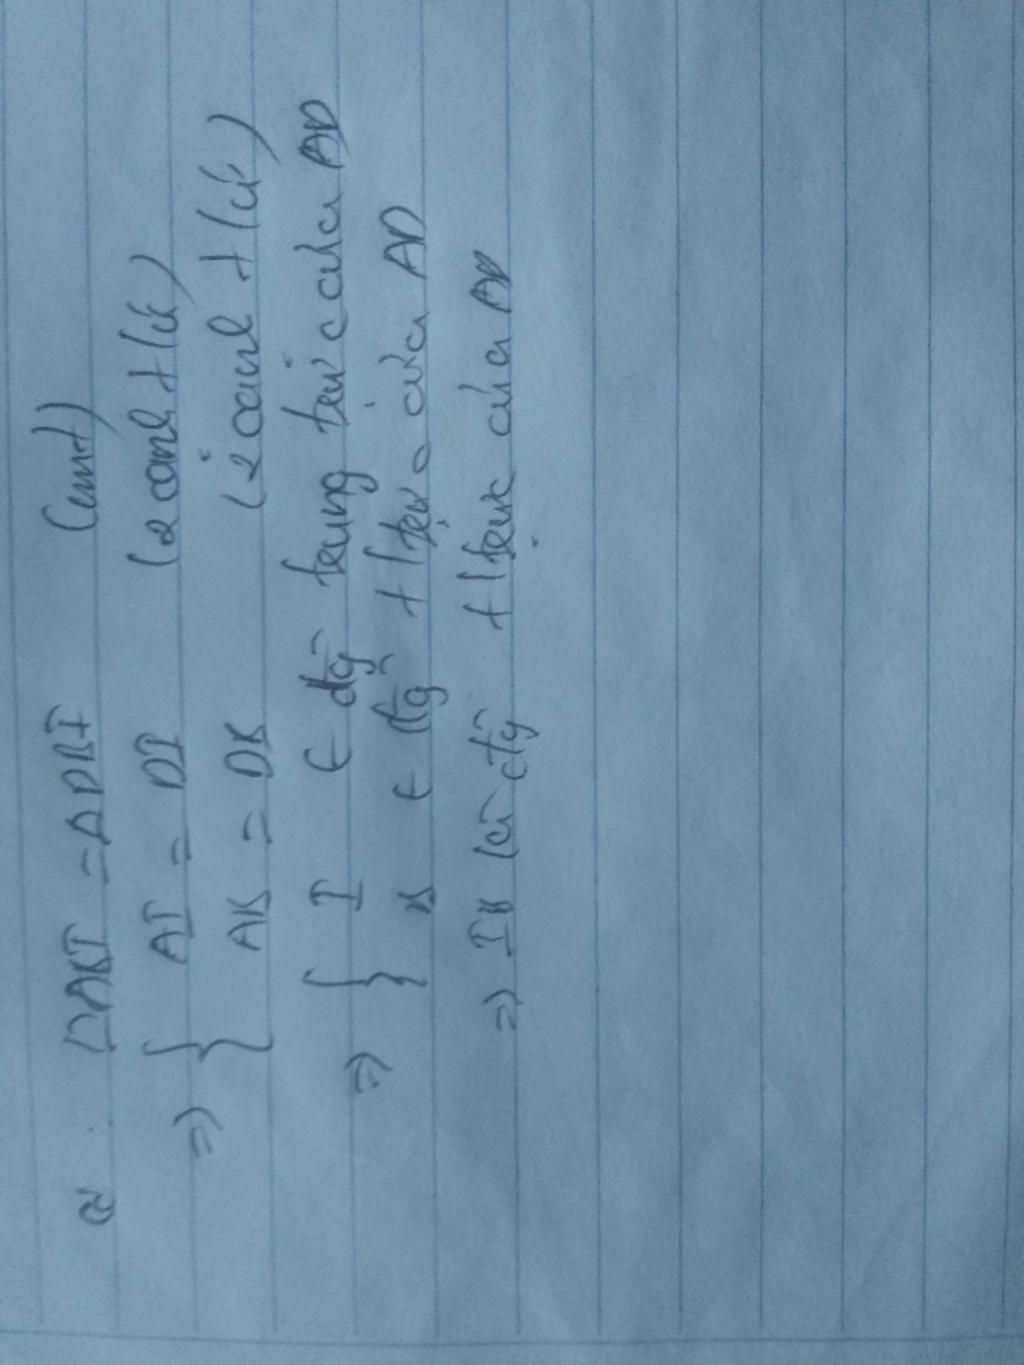 c) ΔAKI = ΔDKI (cmt)
=> { AI = DI (2 cạnh t/ứ)
AK = DK (2 cạnh t/ứ)
=> { I ∈ đg trung trực của AD
K ∈ đg t/trực của AD
=> IK là đg t/trực của AD